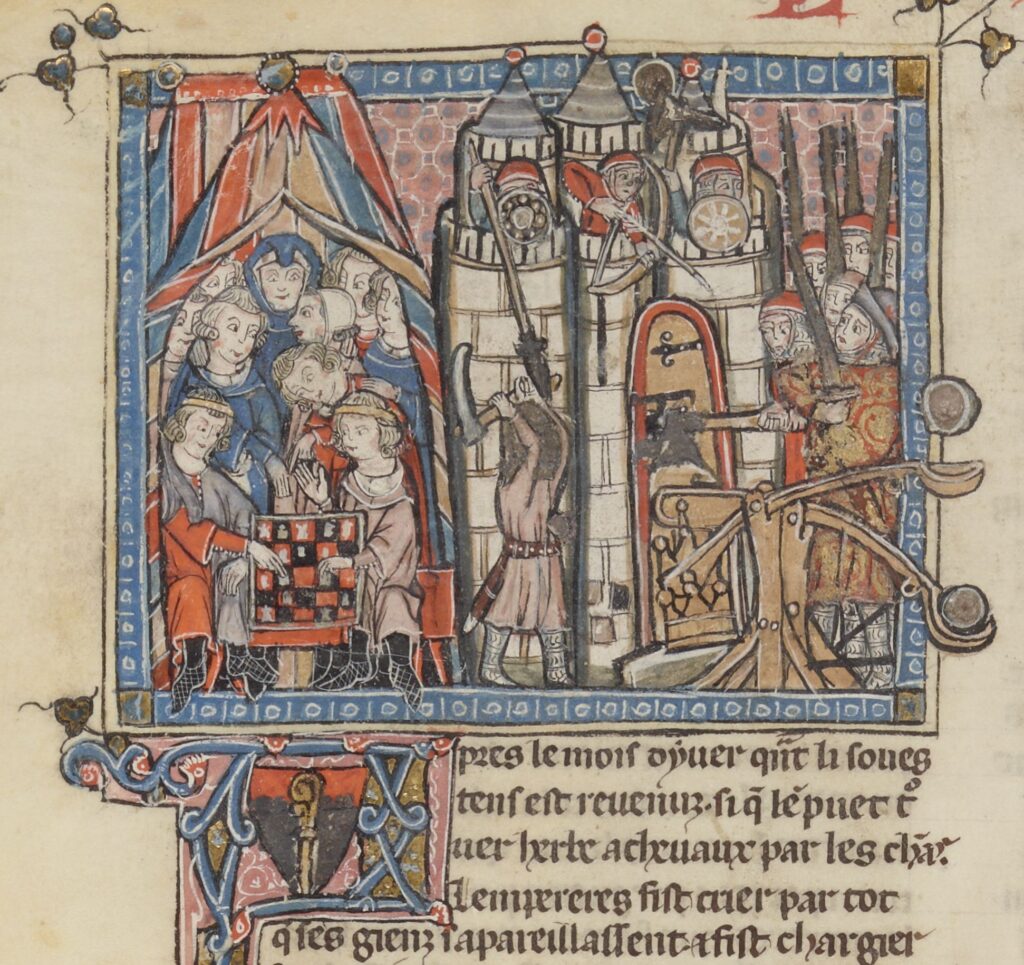 A
pres le mois dyuer qñt li soues
tens est reuenuz. si q̃ lẽ puet t°
uer herbe a cheuaux par les chãs.
Lempereres fist crier par tot
q̃ ses gienz sapareillassent ⁊ fist chargier